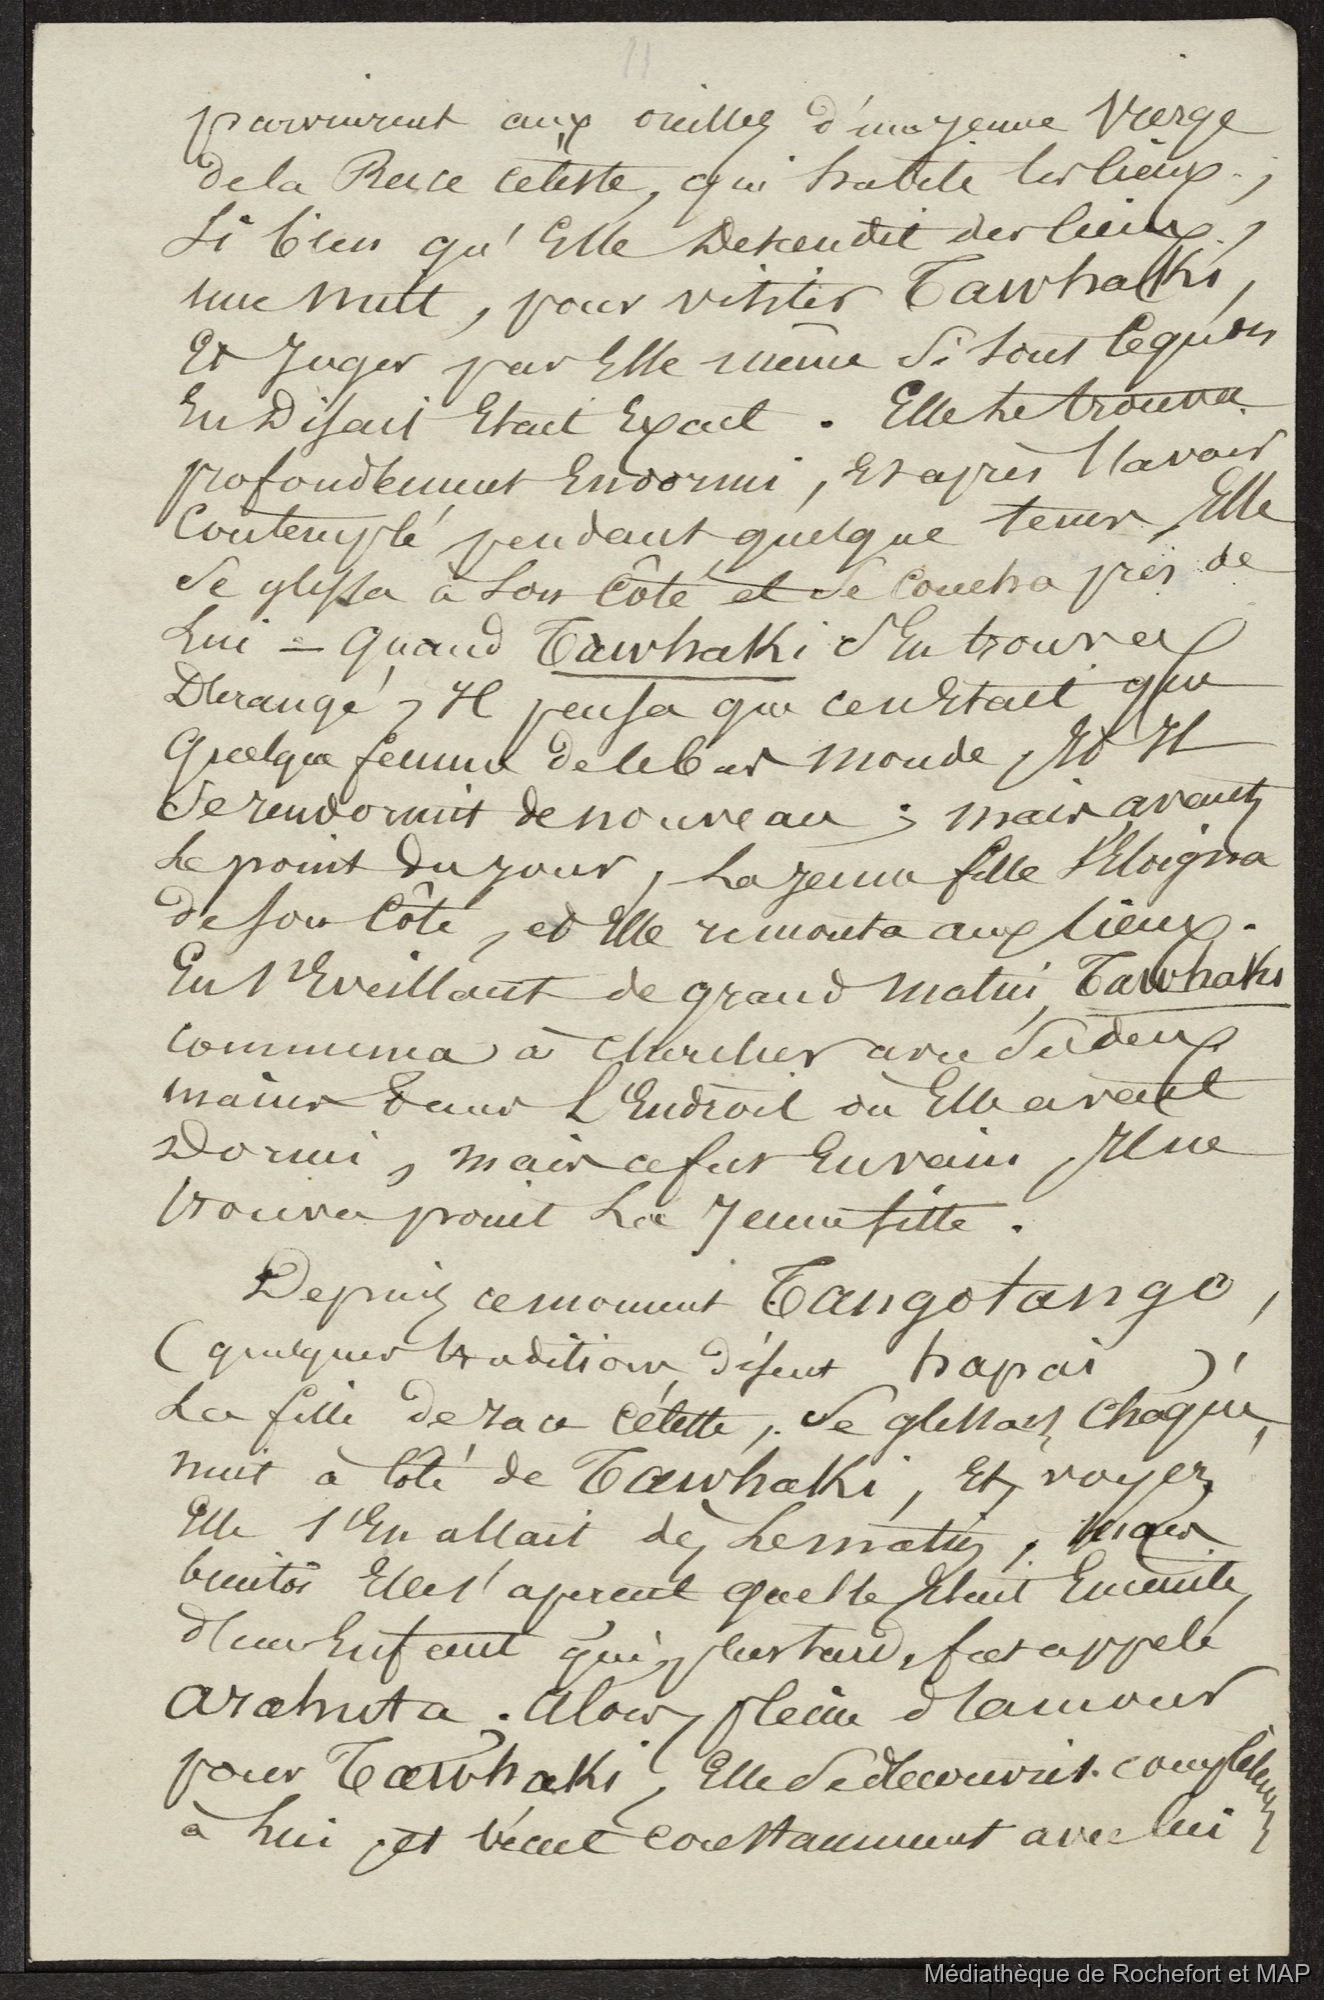 11
parvinrent aux oreilles d'une Jeune Vierge
de la Race céleste, qui habite les Cieux ;
Si bien qu'Elle Descendit des Cieux,
une Nuit, pour visiter Tawhaki,
Et Juger par Elle même Si tout Cequ'on
En Disait Etait Exact. Elle Le trouva
profondément Endormi, Et après l'avoir
Contemplé pendant quelque tems, Elle
Se glissa à Son Côté et Se Coucha près de
Lui = Quand Tawhaki S'En trouva
Dérangé, Il pensa que cen'Etait que
Quelque femme de ce bas Monde, Et Il
Se rendormit de nouveau ; Mais avant
Le point du jour, La Jeune fille S'Eloigna
de Son Côté, et Elle remonta aux Cieux.
En S'Eveillant de grand Matin, Tawhaki
commença à chercher avec Ses deux
mains Dans L'Endroit où Elle avait
Dormi, Mais ce fut En vain, Il ne
trouva point La Jeune fille.
Depuis ce moment Tangotango,
(quelques traditions disent hapai),
La fille de race Céleste, Se glissait Chaque
nuit à Coté de Tawhaki, Et voyez,
Elle S'En allait dès Le matin, Mais
bientôt Elle S'aperçut qu'elle Etait Enceinte
d'un Enfant qui, plus tard, fut appelé
Arahuta. Alors, pleine d'amour
pour Tawhaki, Elle Se découvrit complètement
à Lui, Et vécut constamment avec lui
Médiathèque de Rochefort et MAP